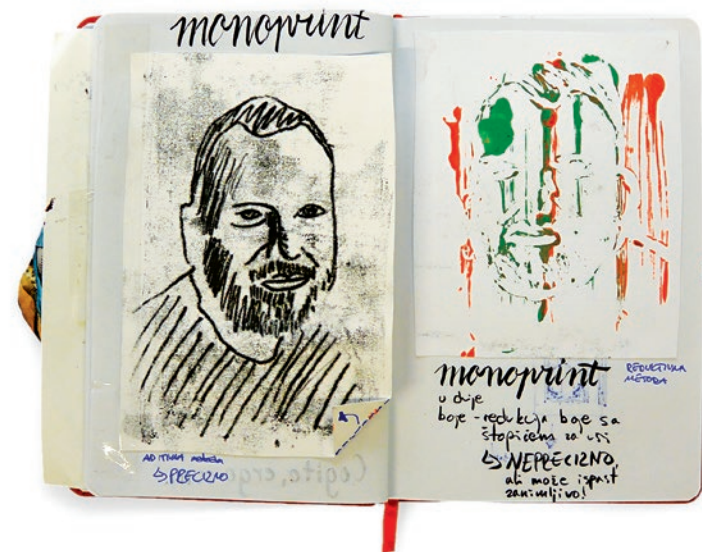 monoprint
ADITIVNA METODA
↳ PRECIZNO
Cogito, ergo
monoprint
REDUKTIVNA
METODA
u dvije
boje - redukcija boje sa
štapićem za uši
↳ NEPRECIZNO,
ali može ispast
zanimljivo!